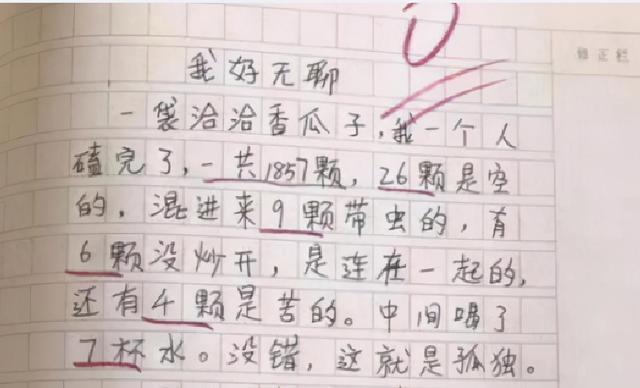 0
修正栏
我好无聊
一袋洽洽香瓜子,我一个人
磕完了,一共1857颗,26颗是空
的,混进来9颗带虫的,有
6颗没炒开,是连在一起的,
还有4颗是苦的。中间喝了
7杯水。没错,这就是孤独。